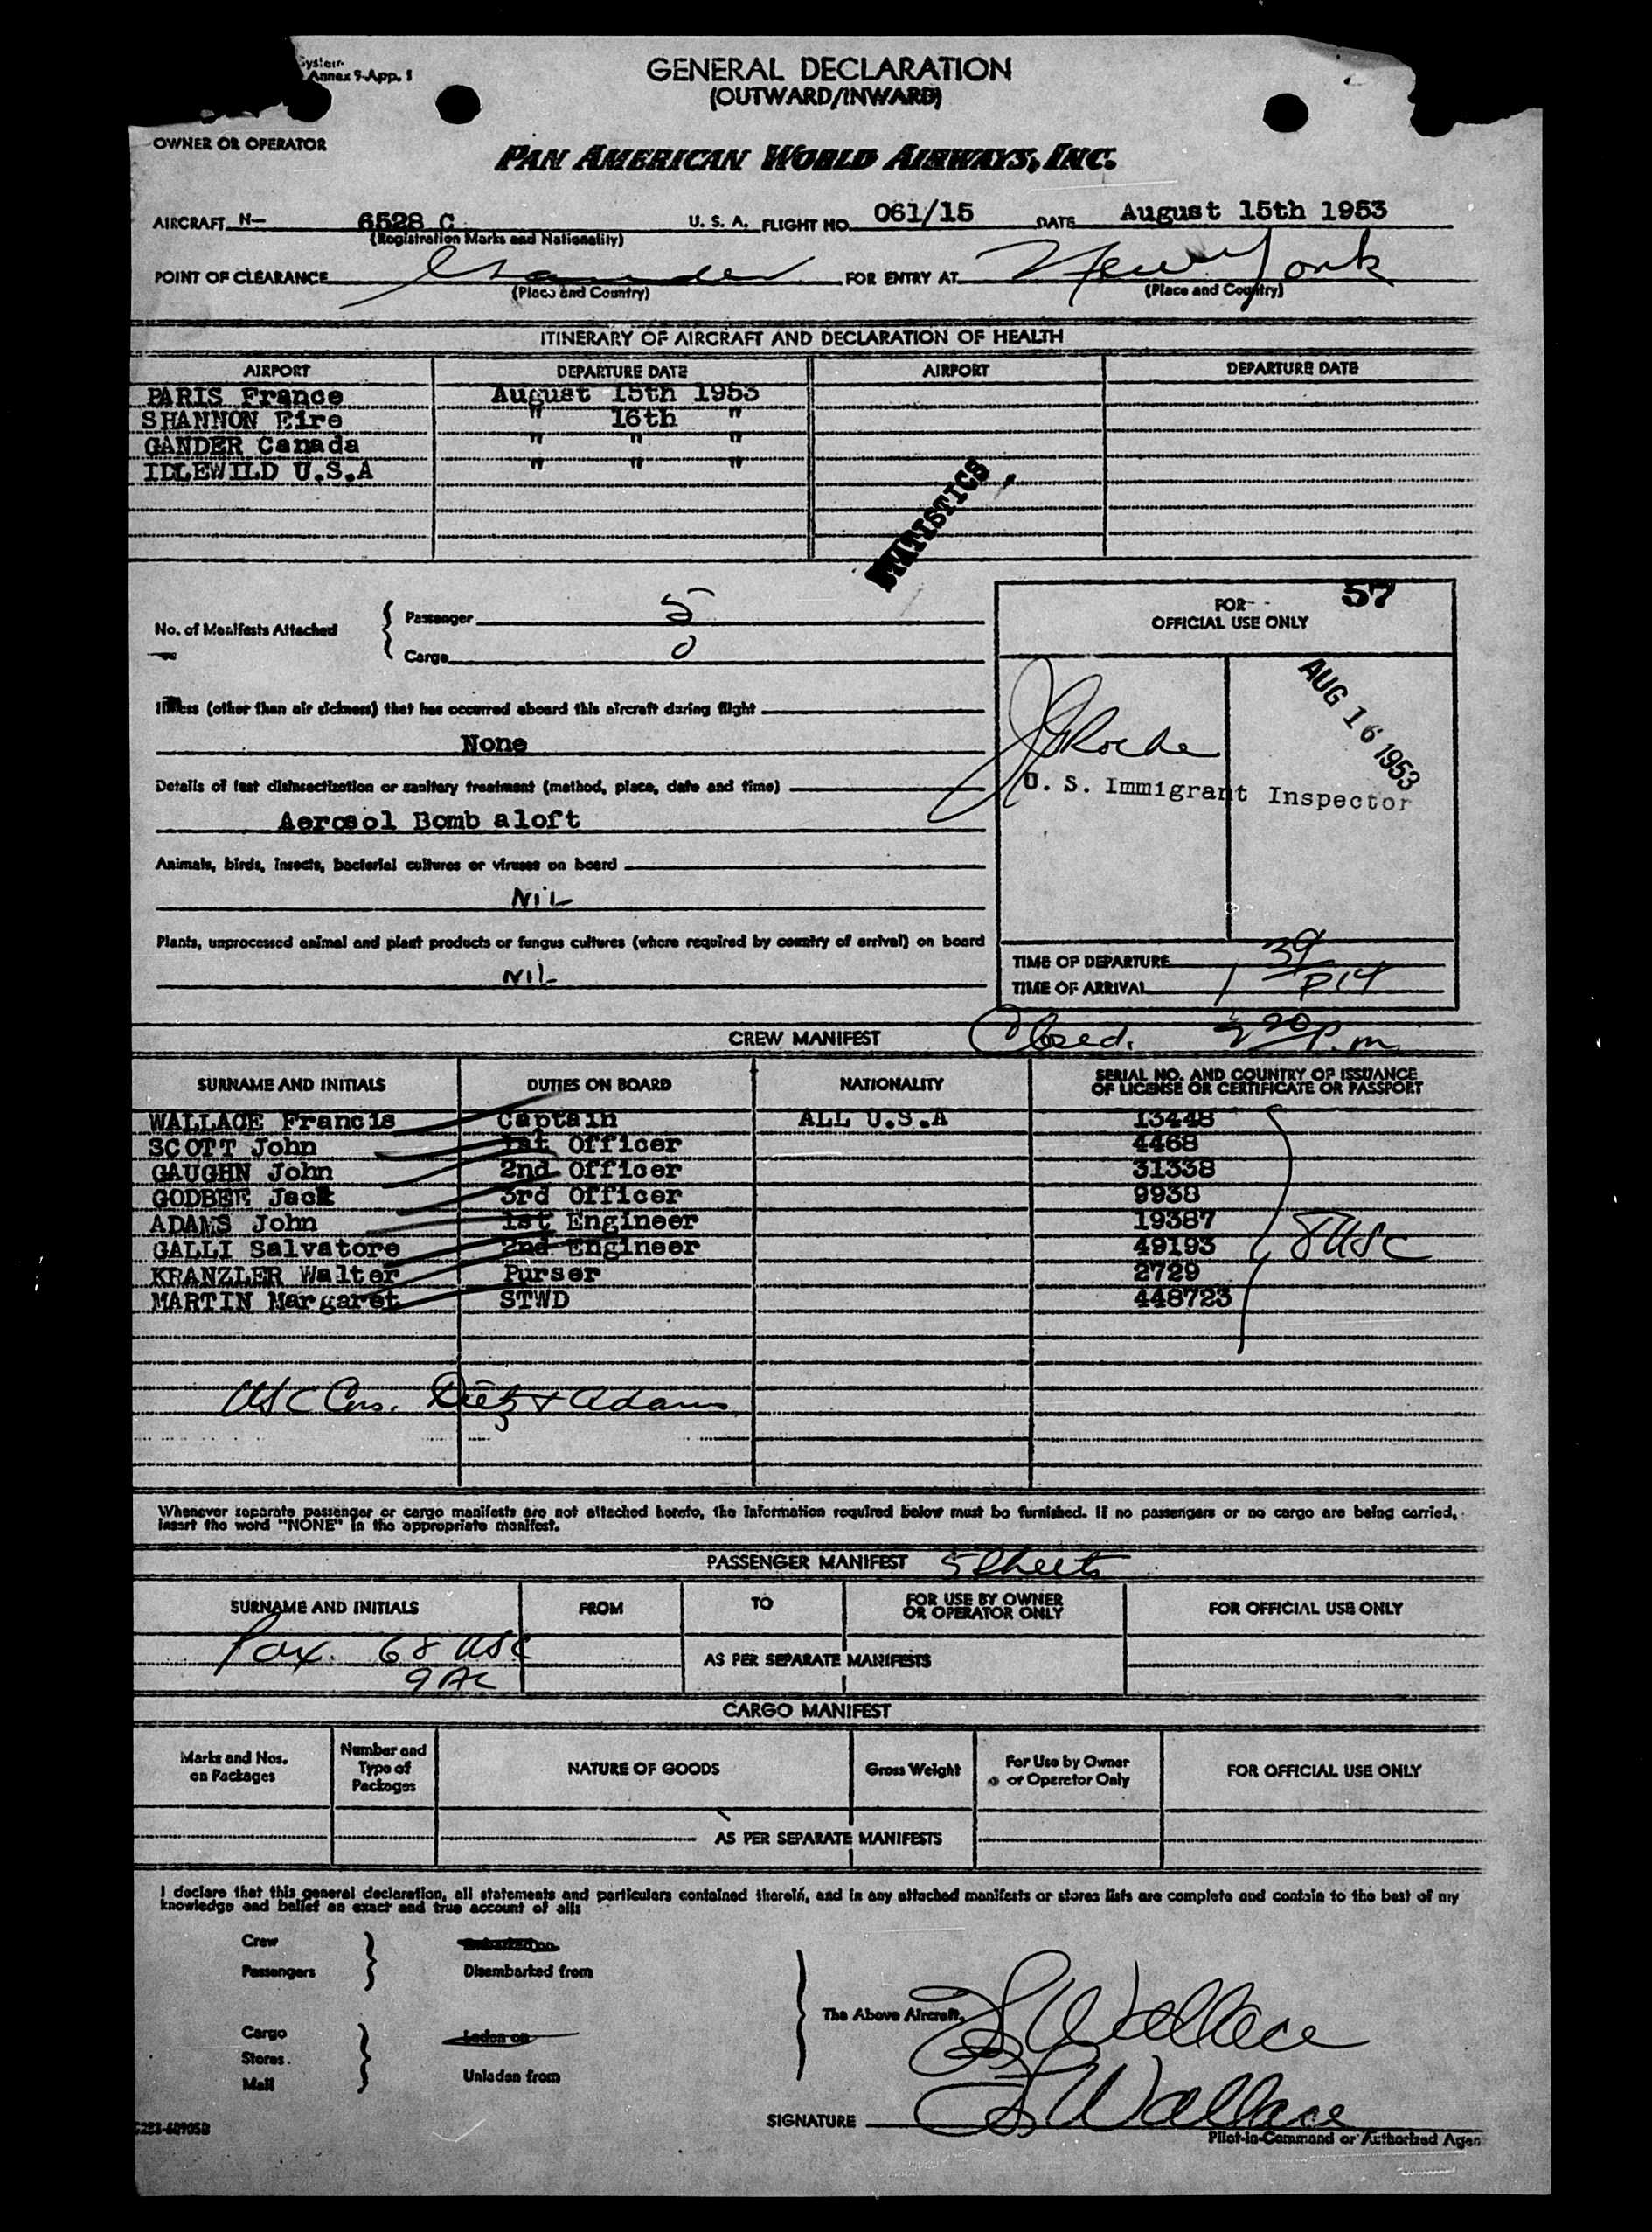 System
Annex 9-App. 1
GENERAL DECLARATION
(OUTWARD/INWARD)
OWNER OR OPERATOR
PAN AMERICAN WORLD AIRWAYS, INC.
AIRCRAFT N- 6528 C U. S. A. FLIGHT NO. 061/15 DATE August 15th 1953
(Registration Marks and Nationality)
POINT OF CLEARANCE Gander FOR ENTRY AT New York
(Place and Country) (Place and Country)
ITINERARY OF AIRCRAFT AND DECLARATION OF HEALTH
AIRPORT DEPARTURE DATE AIRPORT DEPARTURE DATE
PARIS France August 15th 1953
SHANNON Eire " 16th "
GANDER Canada " " "
IDLEWILD U.S.A " " "
STATISTICS
57
FOR
OFFICIAL USE ONLY
No. of Manifests Attached { Passenger 5
Cargo 0
AUG 16 1953
Illness (other than air sickness) that has occurred aboard this aircraft during flight
None
J Roche
U. S. Immigrant Inspector
Details of last disinsectization or sanitary treatment (method, place, date and time)
Aerosol Bomb aloft
Animals, birds, insects, bacterial cultures or viruses on board
NiL
Plants, unprocessed animal and plant products or fungus cultures (where required by country of arrival) on board
NiL
TIME OF DEPARTURE
TIME OF ARRIVAL 1 39
CREW MANIFEST Closed. 2 20 P.m.
SURNAME AND INITIALS DUTIES ON BOARD NATIONALITY SERIAL NO. AND COUNTRY OF ISSUANCE
OF LICENSE OR CERTIFICATE OR PASSPORT
WALLACE Francis Captain ALL U.S.A 13448
SCOTT John 1st Officer 4468
GAUGHN John 2nd Officer 31338
GODBEE Jack 3rd Officer 9938
ADAMS John 1st Engineer 19387
GALLI Salvatore 2nd Engineer 49193 8 USC
KRANZLER Walter Purser 2729
MARTIN Margaret STWD 448723
USC Cns. Dietz + Adams
Whenever separate passenger or cargo manifests are not attached hereto, the information required below must be furnished. If no passengers or no cargo are being carried,
insert the word "NONE" in the appropriate manifest.
PASSENGER MANIFEST 5 Sheets
SURNAME AND INITIALS FROM TO FOR USE BY OWNER
OR OPERATOR ONLY FOR OFFICIAL USE ONLY
Pax. 68 USC
AS PER SEPARATE MANIFESTS
9 AL
CARGO MANIFEST
Marks and Nos.
on Packages Number and
Type of
Packages NATURE OF GOODS Gross Weight For Use by Owner
or Operator Only FOR OFFICIAL USE ONLY
AS PER SEPARATE MANIFESTS
I declare that this general declaration, all statements and particulars contained therein, and in any attached manifests or stores lists are complete and contain to the best of my
knowledge and belief an exact and true account of all:
Crew Embarked on
Passengers Disembarked from
The Above Aircraft.
Cargo Laden on
Stores.
Mail Unladen from
F S Wallace
SIGNATURE F S Wallace
Pilot-in-Command or Authorized Agen